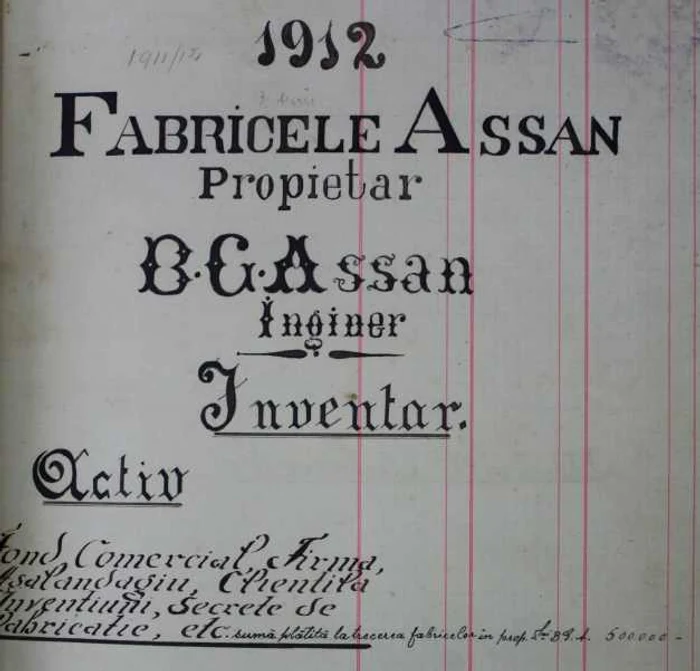 1912
1911/12
FABRICELE ASSAN
Propietar
B. G. Assan
Inginer
Inventar.
Activ
Fond Comercial, Firma,
Asalandagiu, Clientila
Inventiuni, Secrete de
Fabricatie, etc. sumă plătită la trecerea fabricelor in prop. Dlui B. G. A. 500.000 -